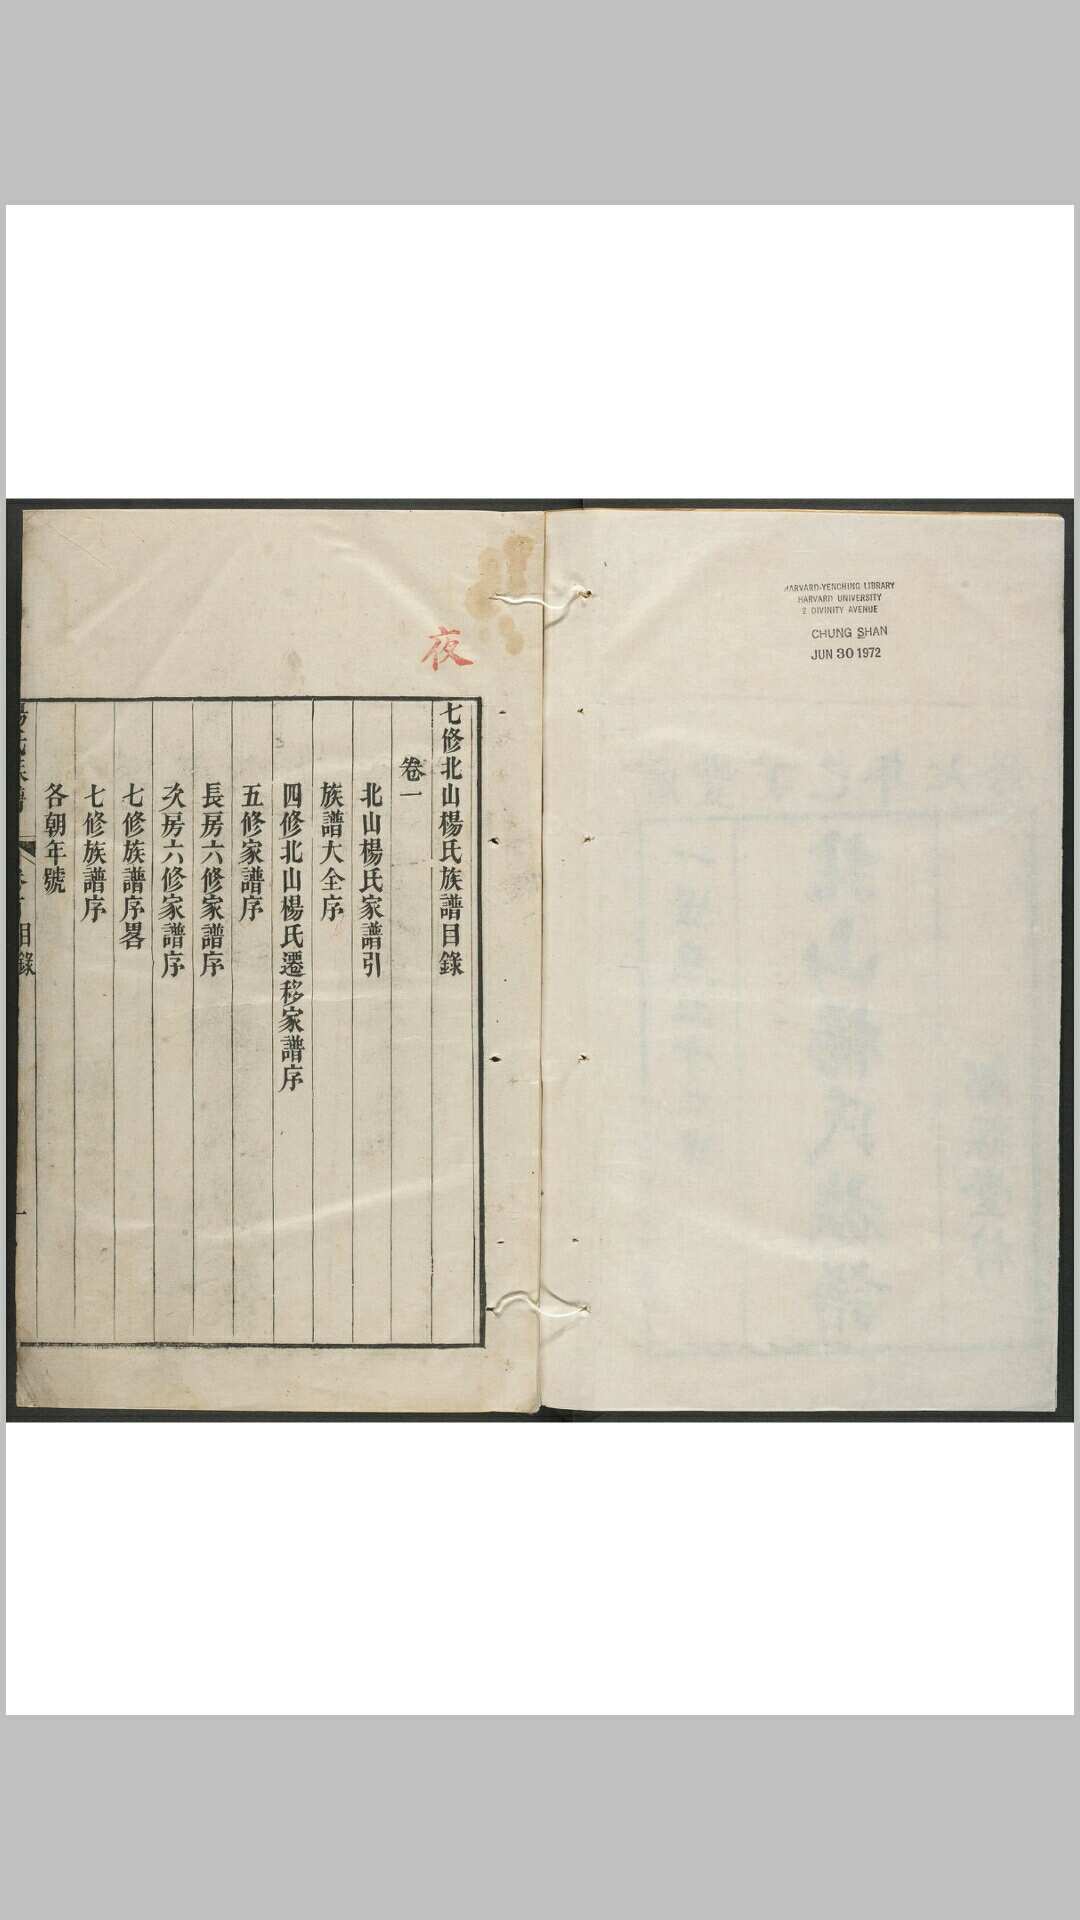 HARVARD-YENCHING LIBRARY
HARVARD UNIVERSITY
2 DIVINITY AVENUE
CHUNG SHAN
JUN 30 1972
夜
七修北山楊氏族譜目錄
卷一
北山楊氏家譜引
族譜大全序
四修北山楊氏遷移家譜序
五修家譜序
長房六修家譜序
次房六修家譜序
七修族譜序畧
七修族譜序
各朝年號
目錄
一